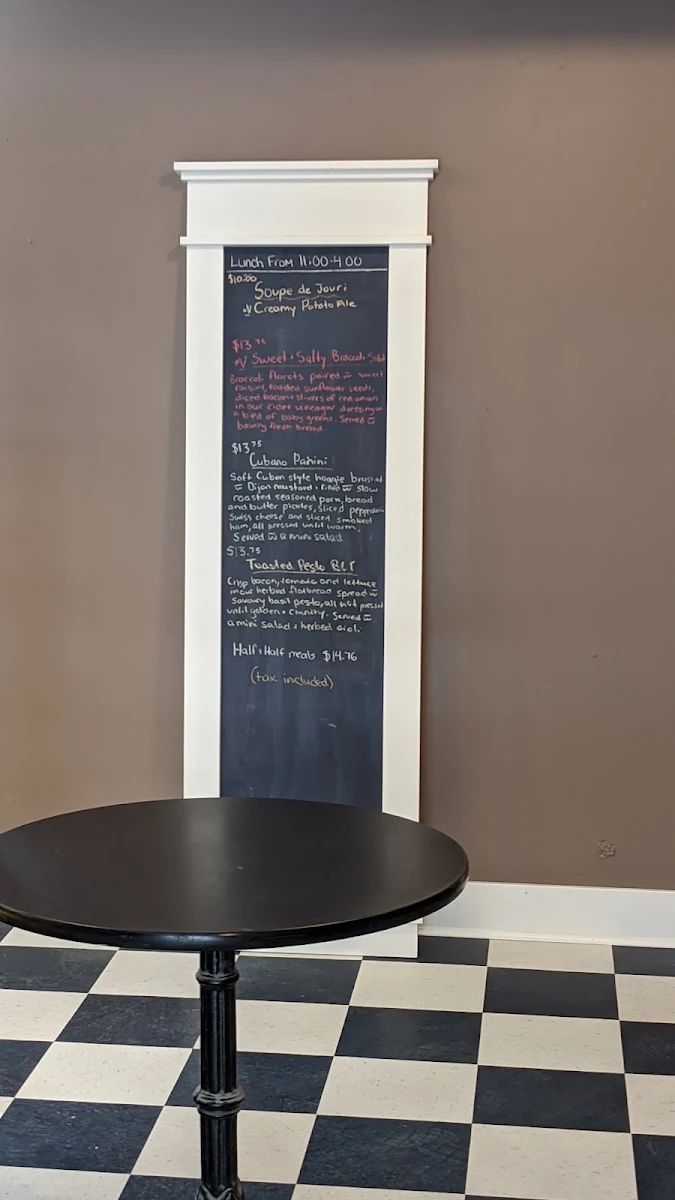 Lunch From 11:00-4:00
$10.00
Soupe de Jour!
Creamy Potato Ale
$13.75
Sweet + Salty Broccoli Salad
Broccoli florets paired w sweet
raisins, toasted sunflower seeds,
diced bacon + slivers of red onion
in our cider vinegar dressing on
a bed of baby greens. Served w
bakery fresh bread.
$13.75
Cubano Panini
Soft Cuban style hoagie brushed
w Dijon mustard + filled w slow
roasted seasoned pork, bread
and butter pickles, sliced pepperoni
Swiss cheese and sliced smoked
ham, all pressed until warm.
Served w a mini salad.
$13.75
Toasted Pesto BLT
Crisp bacon, tomato and lettuce
in our herbed flatbread spread w
savoury basil pesto, all hot pressed
until golden + crunchy. Served w
a mini salad + herbed aioli.
Half + Half meals $14.76
(tax included)